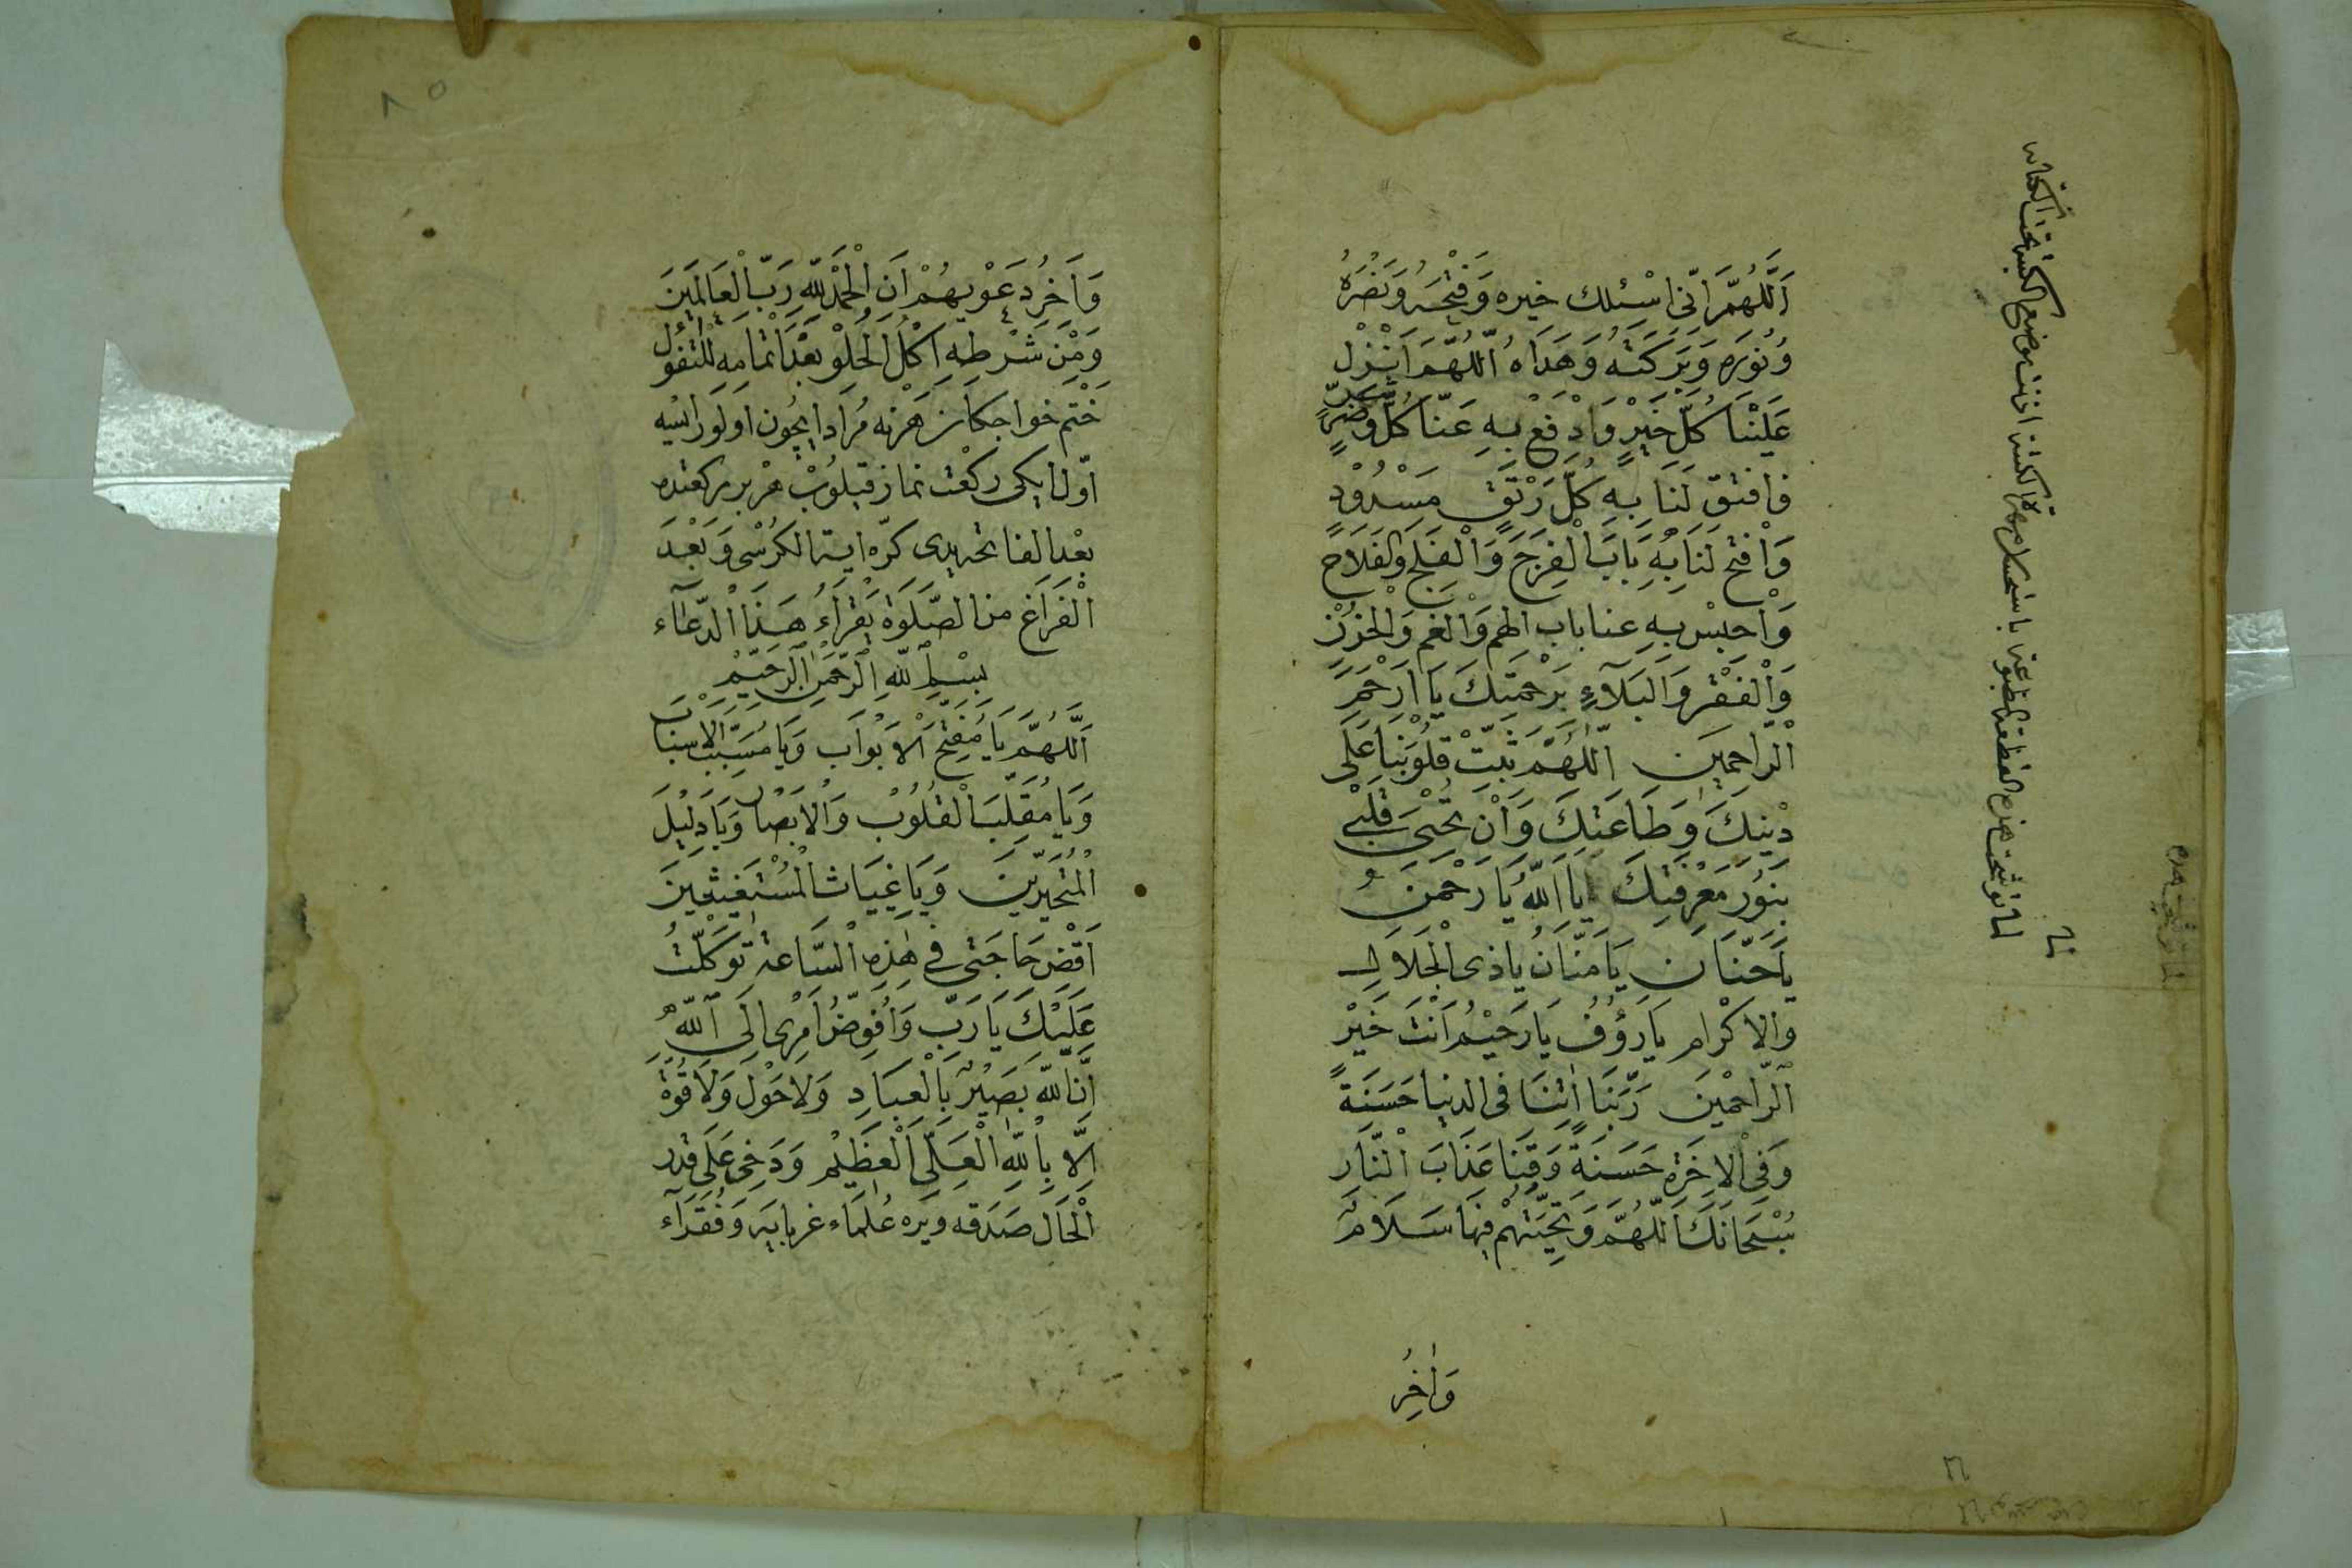 اَللّٰهُمَّ اِنّى اسْئلك خيره وَفَتْحِهُ وَنَصْرَهُ
وَنُورَهِ وَبَرَكَتَهُ وَهَدَاهُ اَللّٰهُمَّ اَنْزِل
عَلَيْنَا كُلَّ خَيْرٍ وَادْفَعْ بِهِ عَنّا كُلَّ وَضُرٍّ
فافتق لَنَا بِهِ كُلَّ رَتَقٍ مَسْدُوْدٍ
وَافْتح لَنَا بِهِ بَابَ الْفَرَجَ وَالْفَلَجَ وَالفَلَاحَ
وَاحبِسْ بِهِ عنا باب الهم وَالْغم وَالْحُزْن
وَالْفَقْر وَالبَلآءِ بَرَحْمَتِكَ يَا اَرْحَمَ
الْرّاحِمِينَ اَللّٰهُمَّ ثَبِّتْ قُلُوْبَنَا عَلَى
دْينِكَ وَطَاعَتِكَ وَاَنْ تُحْيَى قَلْبِى
بَنُوْرِ مَعْرِفَتِكَ يَا اَللّٰهُ يَا رَحْمٰنُ
يَا حَنّانُ يَا مَنّانُ يَاذى الْجَلَالِ
والاكْرام يَا رَؤُفُ يَا رَحيْمُ اَنْتَ خَيْرُ
الرّاحمْينَ رَبَّنَا اٰتِنَا فى الدنيا حَسَنَةً
وَفِى الْاخَرةِ حَسَنَةً وَقِنَا عَذَابَ النّار
سُبْحَانَكَ اَللّٰهُمَّ وَتَحِيَّتهُمْ فِيهَا سَلَامٌ
وَاٰخِرُ
وَآخِرُ دَعْوٰيهُمْ اَنِ الْحَمْدُ لِلّٰهِ رَبِّ الْعَالَمَينَ
وَمْنِ شَرْطِهِ اَكْلُ الْحُلْوِ بَعْدَ اتْمَامِهِ لِلتَّفَوُّلِ
خَتم خواجكان هَرْنه مُراد ايچُون اولور ايسه
اوّلا ايكى ركعت نماز قيلوُب هر بر ركعتده
بعد الفاتحه يدى كرّه اية الكرسى وَبَعْدَ
الْفَرَاغ من الصَّلوَة يَقْرَاءُ هَذَا الدّعَآء
بِسْمِ اللّٰهِ الرَّحْمٰنِ الرَّحيْمِ
اَللّٰهُمَّ يَا مُفَتِّحَ الْاَبْوَاب وَيَا مُسَبِّبَ الاسْبَاب
وَيَا مُقَلِّبَ الْقُلُوْبُ وَالْاَبْصَار وَيَا دَلِيْلَ
المُتَحَيِّرِينَ وَيَا غِيَاثَ الْمُسْتَغِيثِينَ
اَقْضِ حَاجَتى فى هٰذِهِ السَّاعَة تَوَكَّلْتُ
عَلَيْكَ يَا رَبِّ وَاُفَوِّضُ اَمْرِى اِلَى اللّٰهِ
اِنَّ اللّٰه بَصَيْرٌ بِالْعِبَادِ وَلَا حَوْل وَلَا قُوّة
اِلَّا بِاللّٰهِ الْعَلِيِّ الْعَظَيْم وَدَخِى عَلَى قدر
الْحَال صَدَقه ويره عُلَمَاء غربايه وَفُقَرَآء